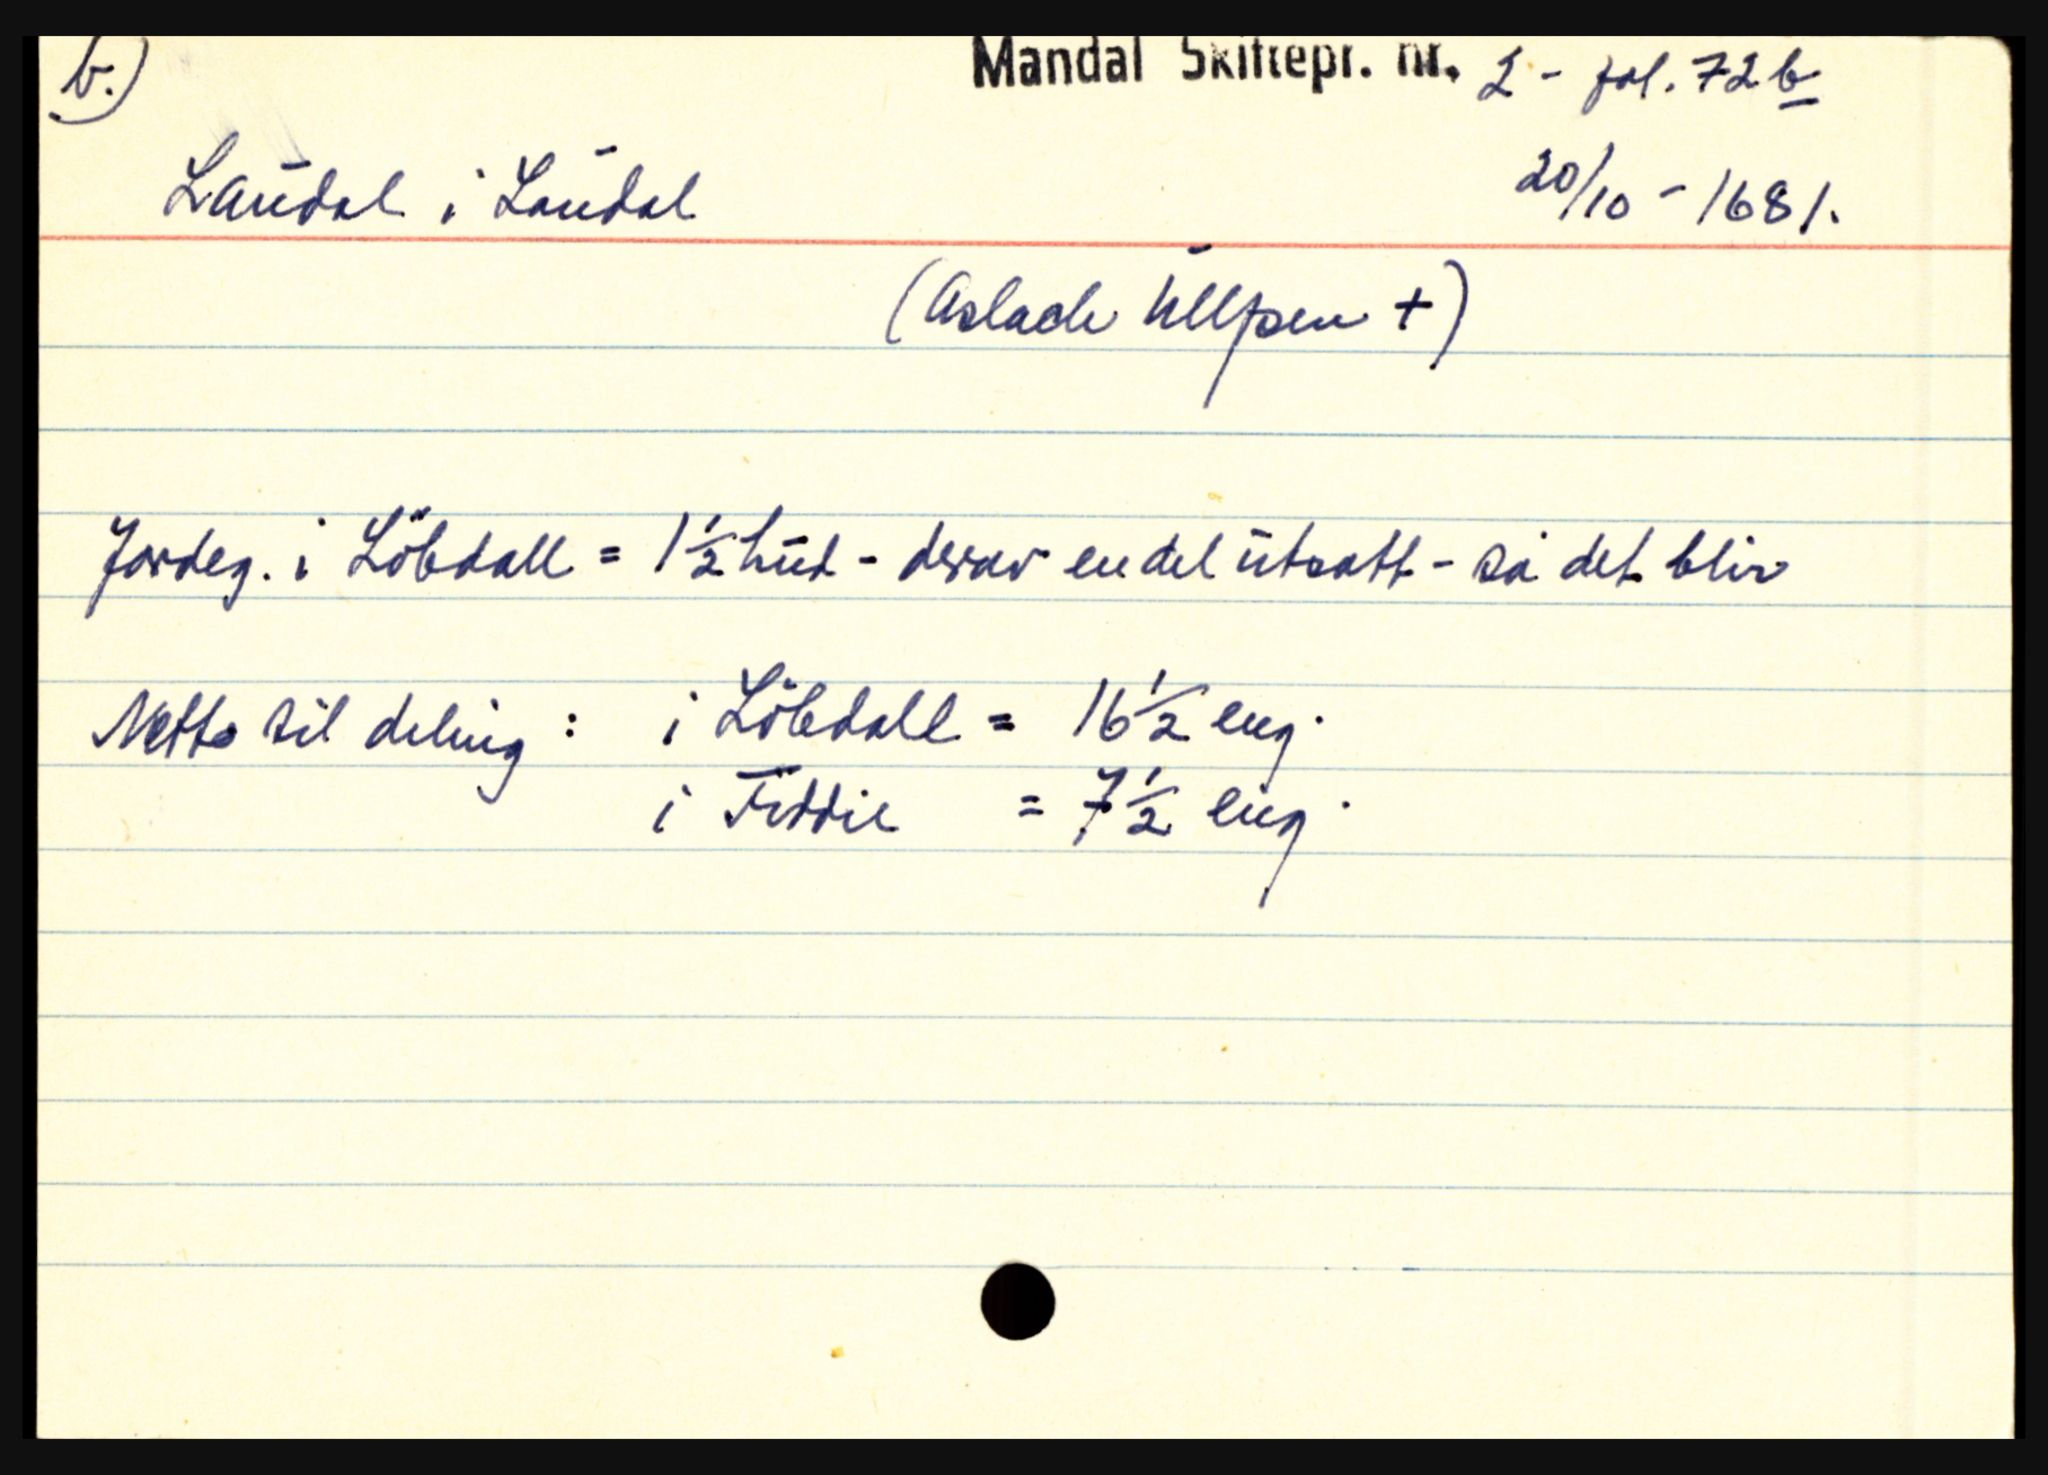 b.)
Mandal Skiftepr. nr. 2 - fol. 72b
Laudal i Laudal
20/10 - 1681.
(Aslach Ullfsen +)
Jordeg. i Löbdall = 1 1/2 hud - derav en del utsatt - så det blir
Netto til deling : i Löbdall = 16 1/2 eng.
i Fiddie = 7 1/2 eng.